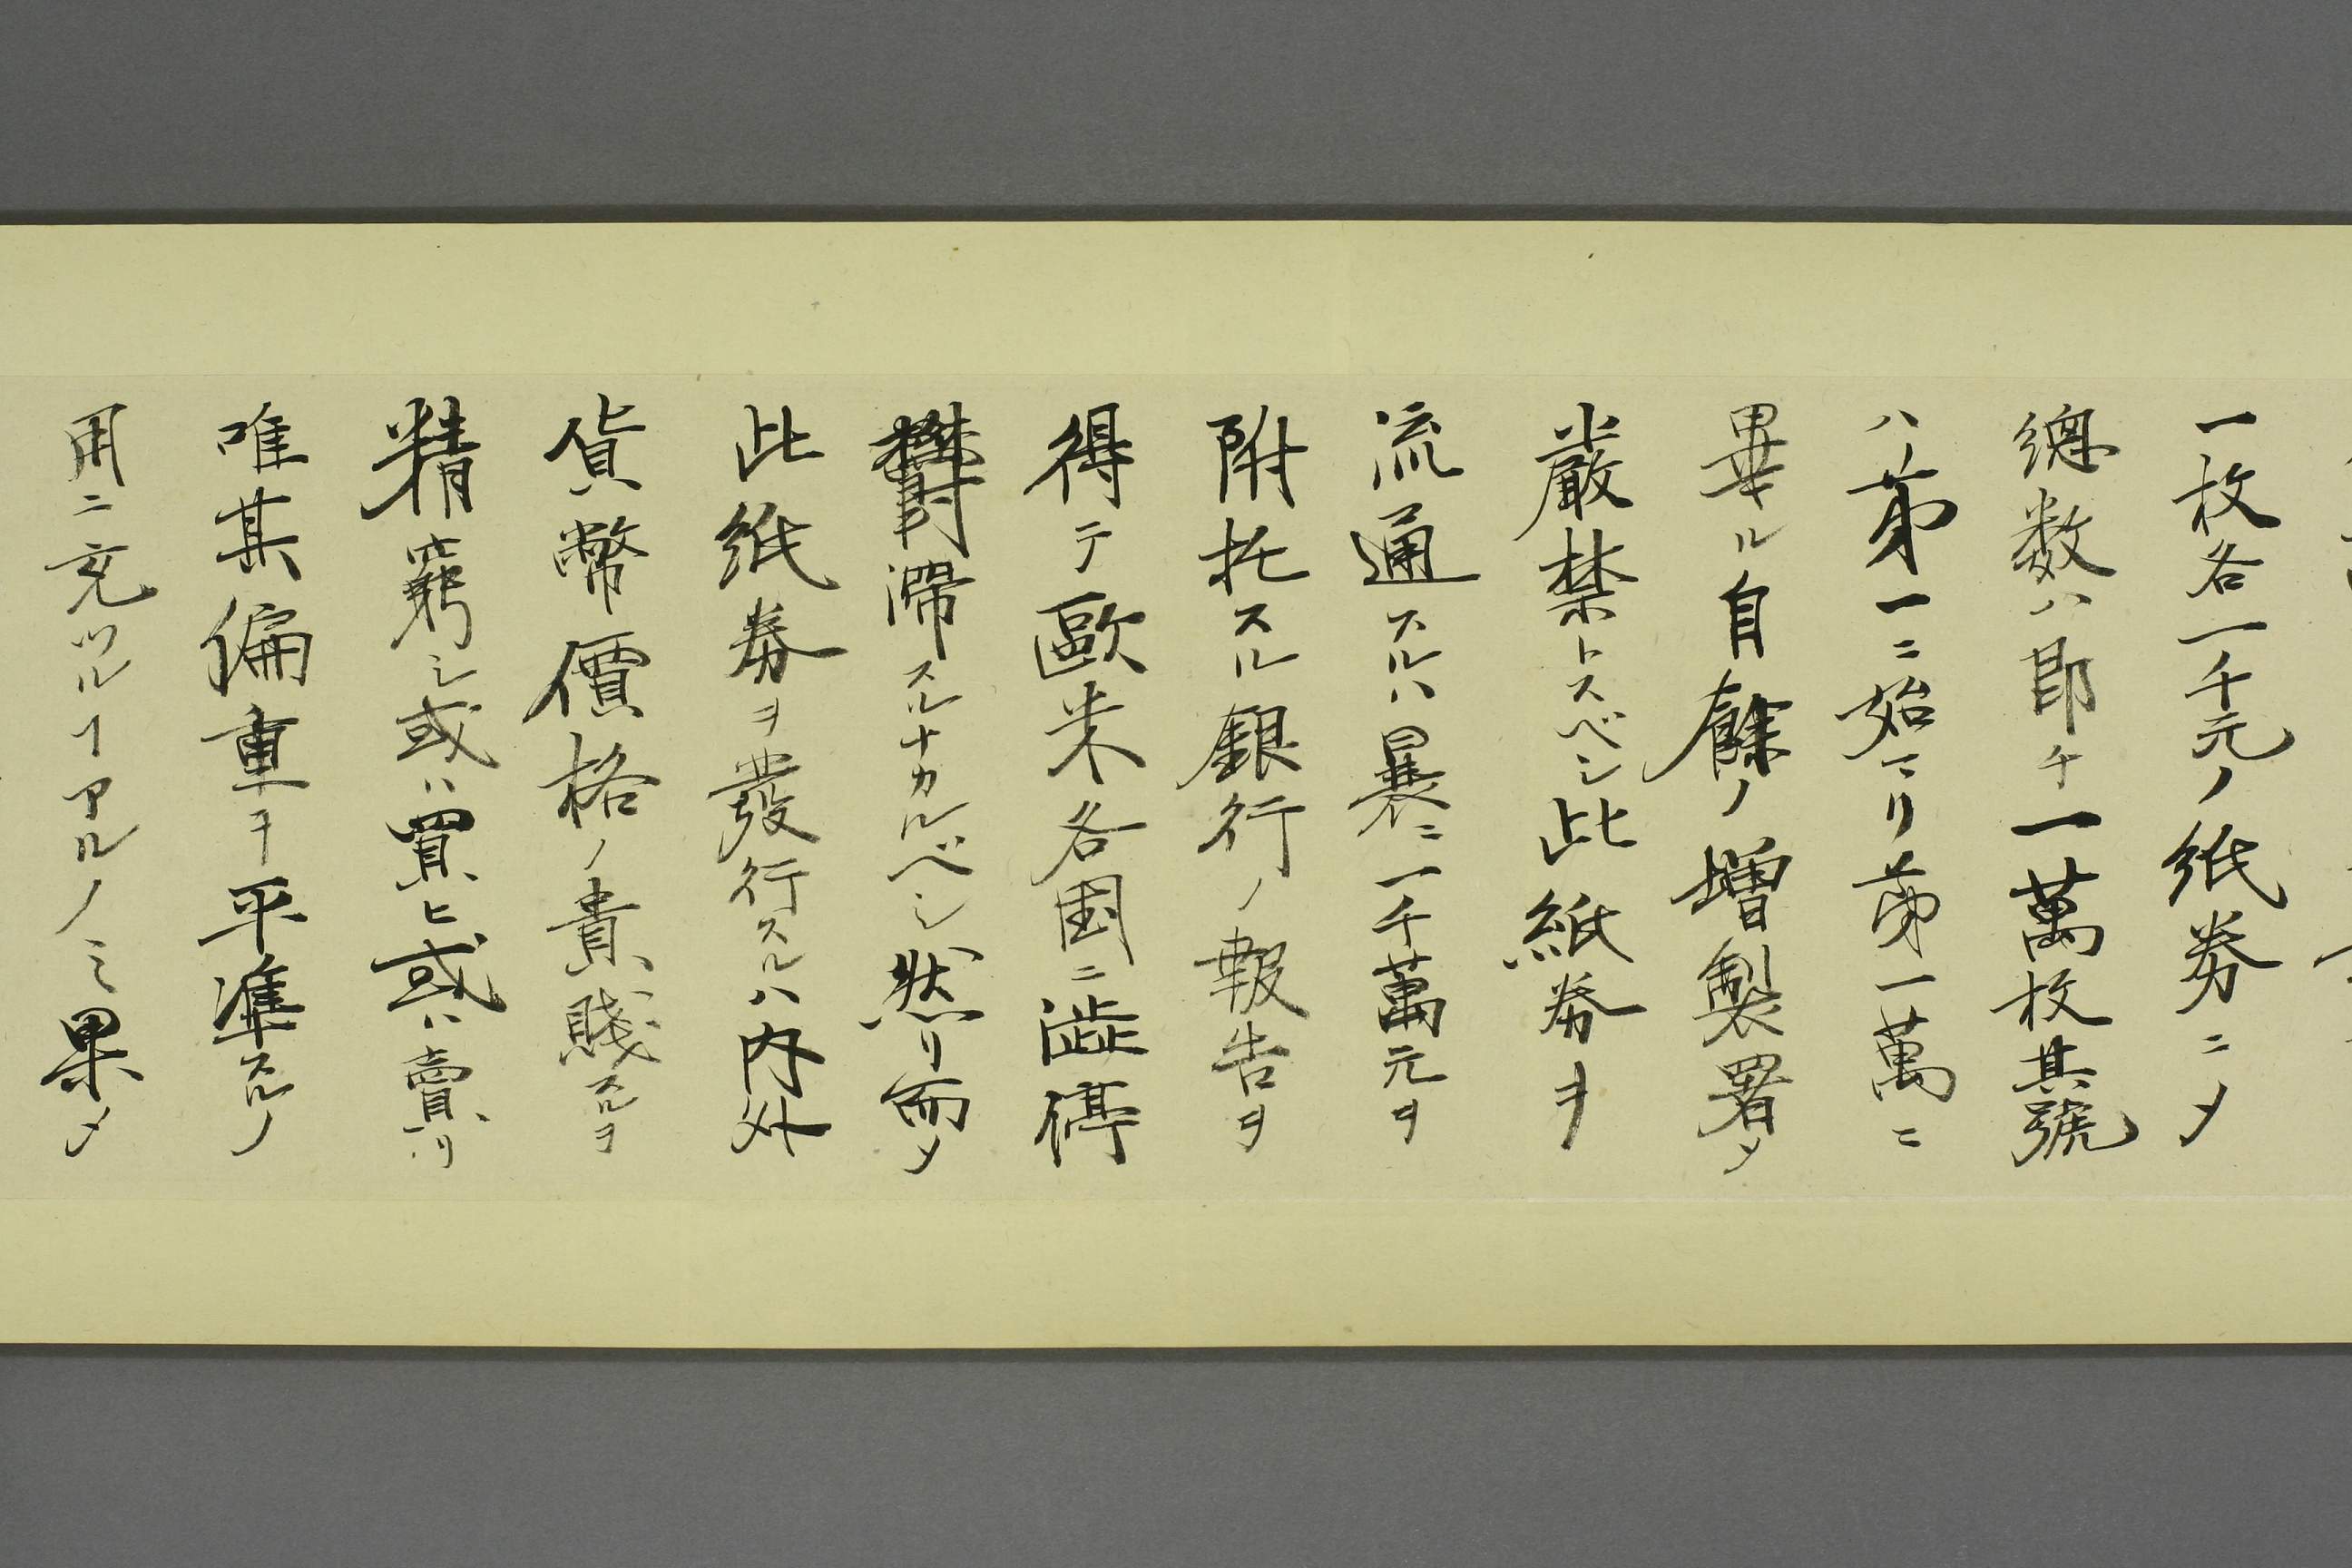 一枚各一千元ノ紙券ニメ
總数ハ即チ一萬枚其號
ハ第一ニ始マリ第一萬ニ
畢ル自餘ノ增製署メ
嚴禁トスベシ此紙券ヲ
流通スルハ曩ニ一千萬元ヲ
附托スル銀行ノ報告ヲ
得テ歐米各國ニ澁停
欝滞スルナカルベシ然リ而メ
此紙券ヲ發行スルハ内外
貨幣價格ノ貴賤スルヲ
精竅シ或ハ買ヒ或ハ賣リ
唯其偏重ヲ平準スルノ
用ニ充ツルヿアルノミ果メ